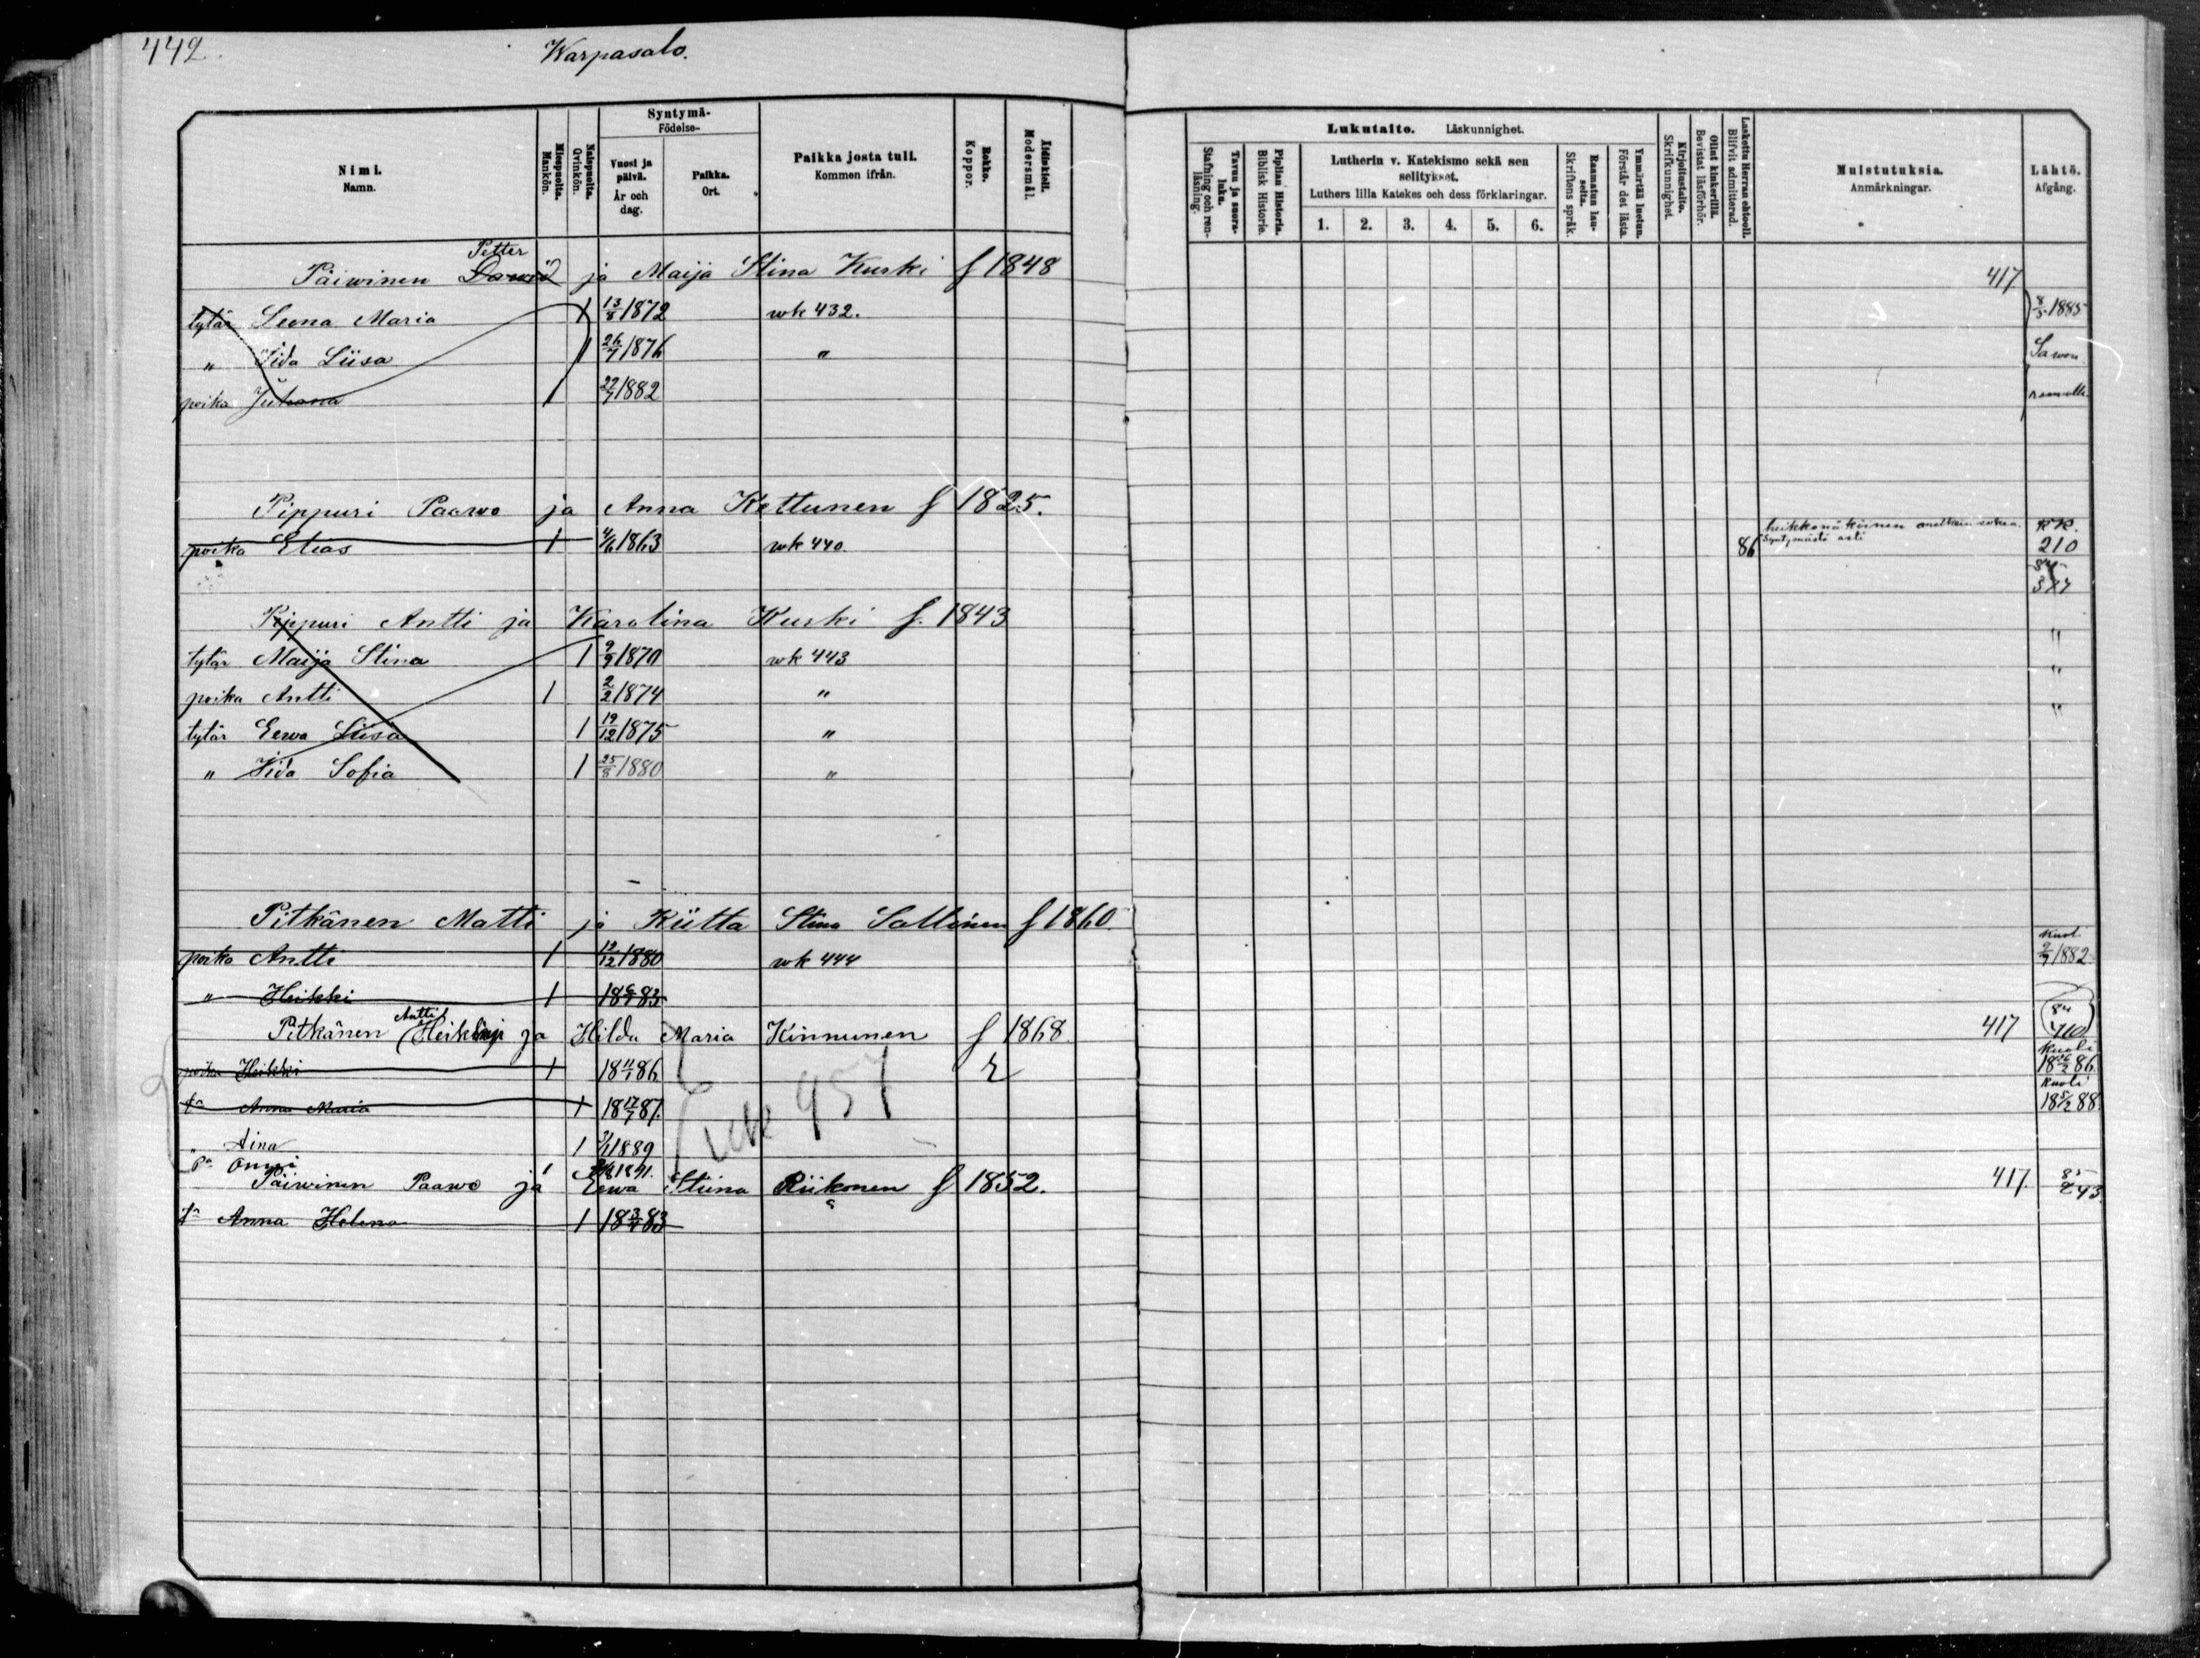 442.
Warpasalo.
Nimi.
Namn.
Miespuolia.
Mankön.
Naispuolia.
Qvinkön.
Syntymä-
Födelse-
Vuosi ja päivä.
År och dag.
Paikka.
Ort.
Paikka josta tuli.
Kommen ifrån.
Rokko.
Koppor.
Äidinkieli.
Modersmål.
Lukutaito. Läskunnighet.
Tavuu ja suora-luku.
Stafning och ren-läsning.
Piplian Historia.
Biblisk Historie.
Lutherin v. Katekismo sekä sen selitykset.
Luthers lilla Katekes och dess förklaringar.
1. 2. 3. 4. 5. 6.
Raamatun lau-seita.
Skriftens språk.
Ymmärtää luetun.
Förstår det lästa.
Kirjoitustaito.
Skrifkunnighet.
Ollut kinkerillä.
Bevistat läsförhör.
Laskettu Herran ehtooll.
Blifvit admitterad.
Muistutuksia.
Anmärkningar.
Lähtö.
Afgång.
Petter
Päiwinen Dawid ja Maija Stina Kurki f 1848 417
tytär Leena Maria 1 13/8 1872 wk 432. 8/5 1885
" Iida Liisa 1 26/7 1876 " Sawon
poika Juhana 1 22/7 1882 rannalle
Pippuri Paawo ja Anna Kettunen f 1825.
poika Elias 1 4/6 1863 wk 440. 86 Syntymästä asti RR. 210
Pippuri Antti ja Karolina Kurki f. 1843
tytär Maija Stina 1 9/9 1870 wk 443 "
poika Antti 1 2/2 1874 " "
tytär Eewa Liisa 1 19/12 1875 " "
" Iida Sofia 1 25/8 1880 "
Pitkänen Matti ja Riitta Stina Sallinen f 1860.
poika Antti 1 12/12 1880 wk 444 Kuol. 2/7 1882
" Heikki 1 18 83
Antti
Pitkänen Heikinp ja Hilda Maria Kinnunen f 1868 417 84 410
poika Heikki 1 18 11/1 86 r Kuoli 18 26/2 86
tr Anna Maria 1 18 17/7 87. Kuoli 18 5/2 88
wk 957
" Aina 1 3/1 1889
pa Onni 1 1891.
Päiwinen Paawo ja Eewa Stiina Riikonen f 1852. 417. 85 243
tr Anna Helena 1 18 3/4 83